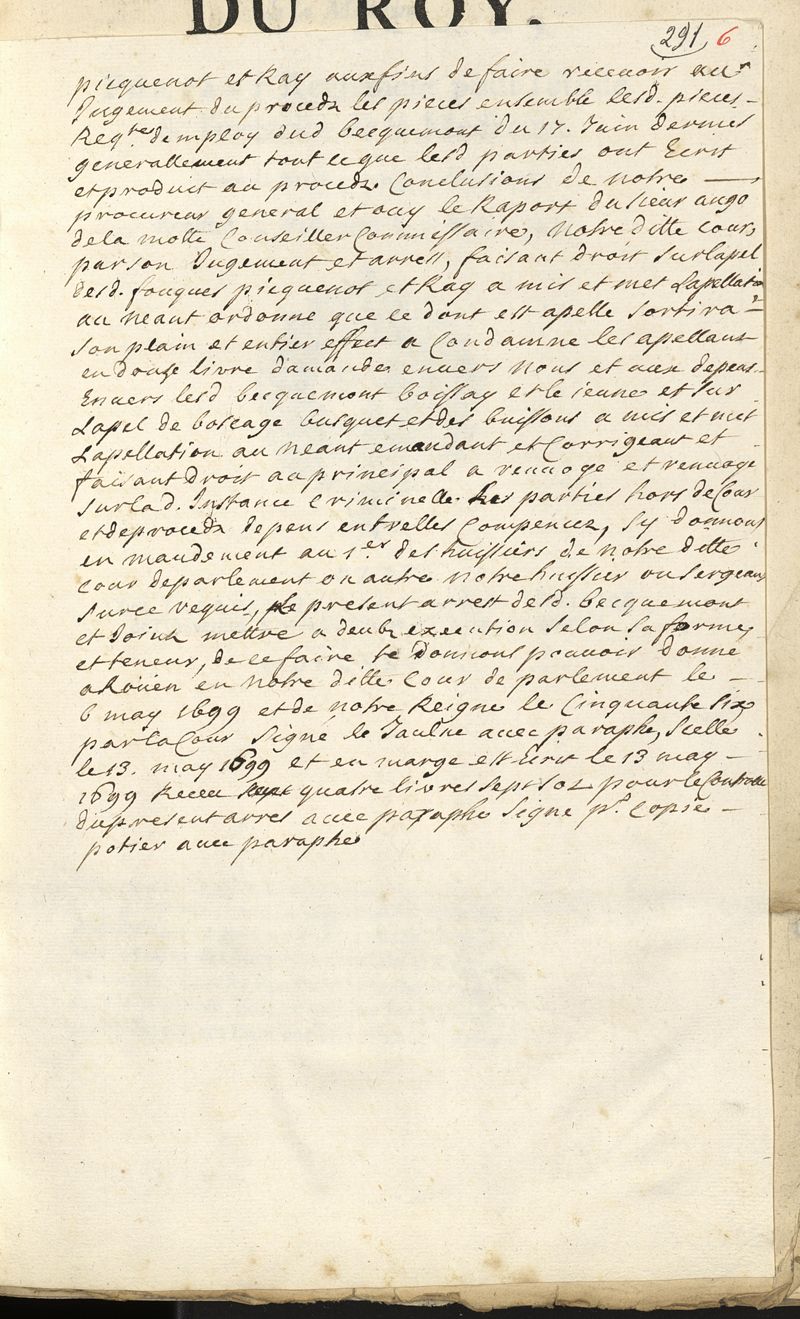 DU ROY.
291 6
picquenot et Ray aux fins de faire recevoir au
Jugement du procedz les pieces ensemble lesd. pieces
Reqtes demploy dud becquemont du 17. Juin dernier
generallement tout ce que lesd parties ont Ecrit
et produit au procedz Conclusions de notre
procureur general et ouy le Raport du sieur ango
de la motte Conseiller Commissaire, Notre ditte cour
par son Jugement et arrest, faisant droit sur lapel
desd. fouques picquenot et Ray a mis et met Lapellation
au neant ordonne que ce dont est apelle sortira
son plain et entier effect a Condamne les apellants
en douze livre damande envers nous et aux depens
Envers lesd becquemont boissay et le jeune et sur
Lapel de boscage busquet et des buissons a mis et met
Lapellation au neant emandant et Corrigeant et
faisant droit au principal a renvoye et renvoye
sur lad. Instance Criminelle les parties hors de Cour
et de procedz depens entrelles Compencez, sy donnons
en mandement au 1er. des huissiers de notre ditte
cour de parlement ou autre notre huissier ou sergeant
sur ce requis, le present arrest desd. becquemont
et Joints mettre a deub execution selon sa forme
et teneur, de ce faire te Donnons pouvoir Donne
a Roüen en notre ditte Cour de parlement le
6 may 1699 et de notre Reigne le Cinquante six
par la Cour signé le Jaulne avec paraphe, scelle
le 13. may 1699 et en marge est Ecrit le 13 may
1699 Receu quatre livres sept sols pour le Controlle
du present arres avec paraphe signe pr. Copie
potier avec paraphe